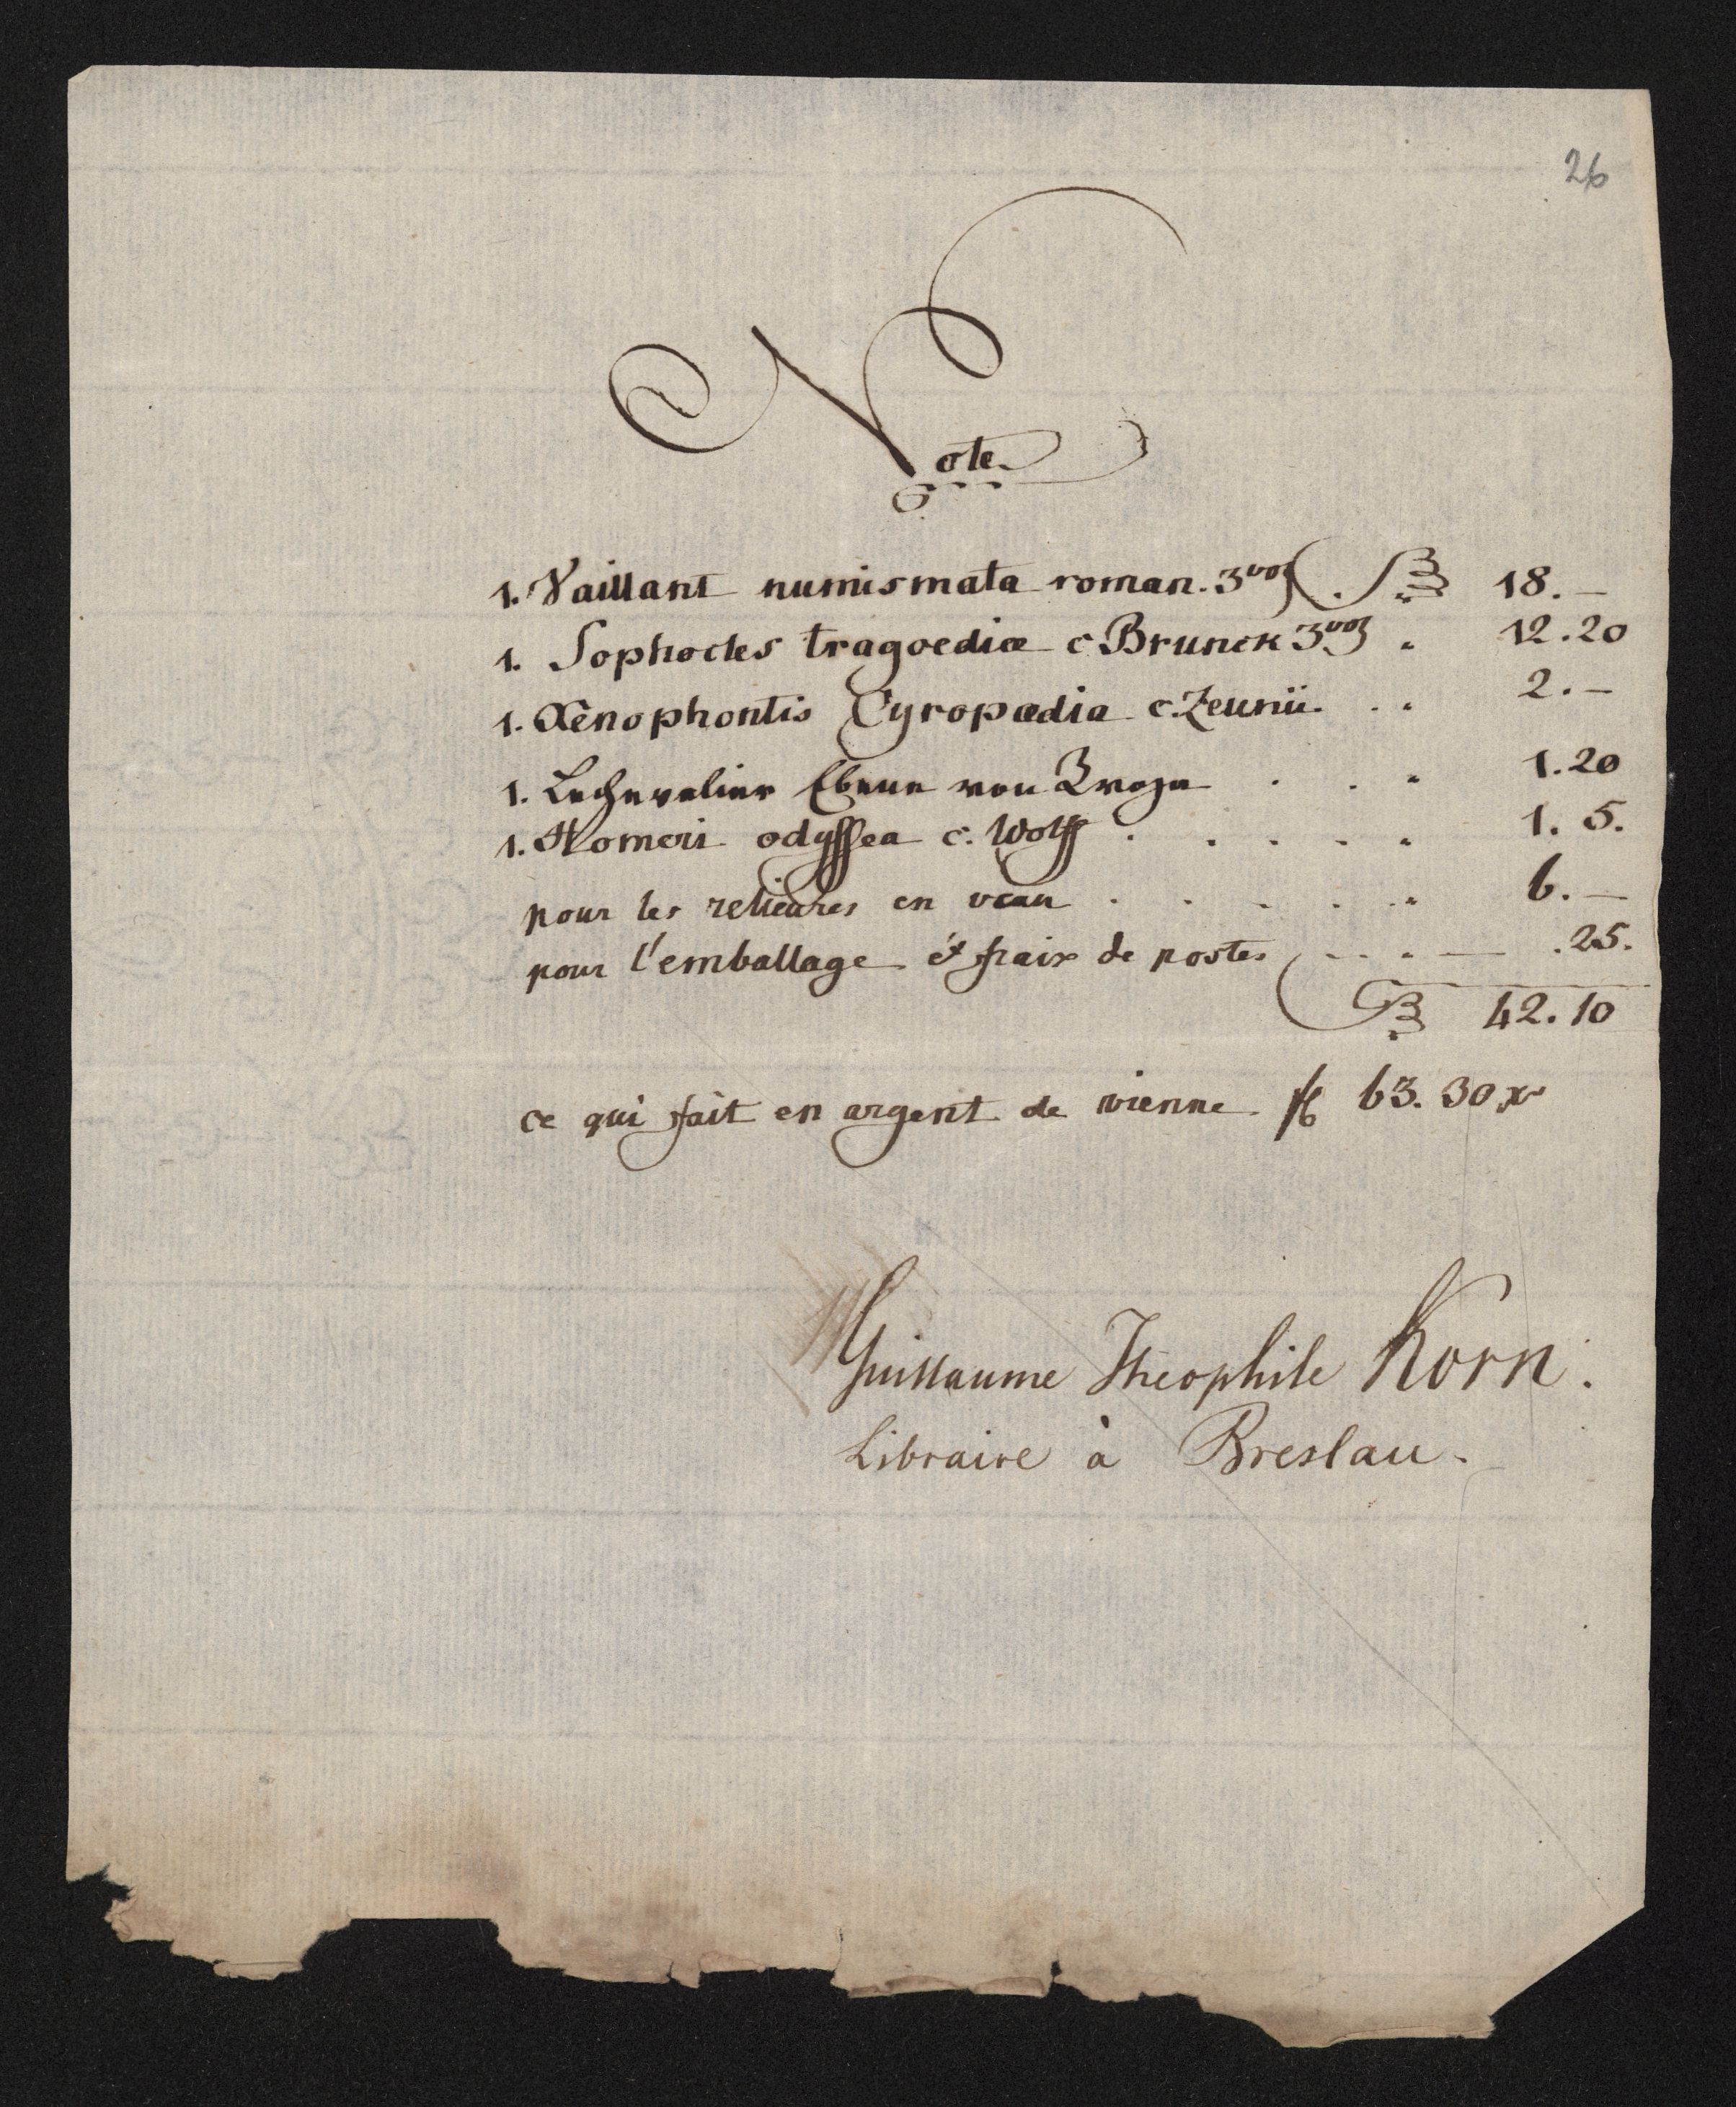 26
Note
1. Vaillant numismata roman. 3 vol . 18. –
1. Sophocles tragoediæ c Brunck 3 vol . 12.20
1. Xenophontis Cyropædia c. Zeunii . . 2. –
1. Lechevalier Ebene von Troja . . . 1.20
1. Homeri odyssea c. Wolff . . . . . 1. 5.
pour les relieures en veau . . . . . 6. –
pour l'emballage et fraix de postes . . . – . 25.
42.10
ce qui fait en argent de vienne fl 63. 30 xr
Guillaume Theophile Korn.
Libraire à Breslau.